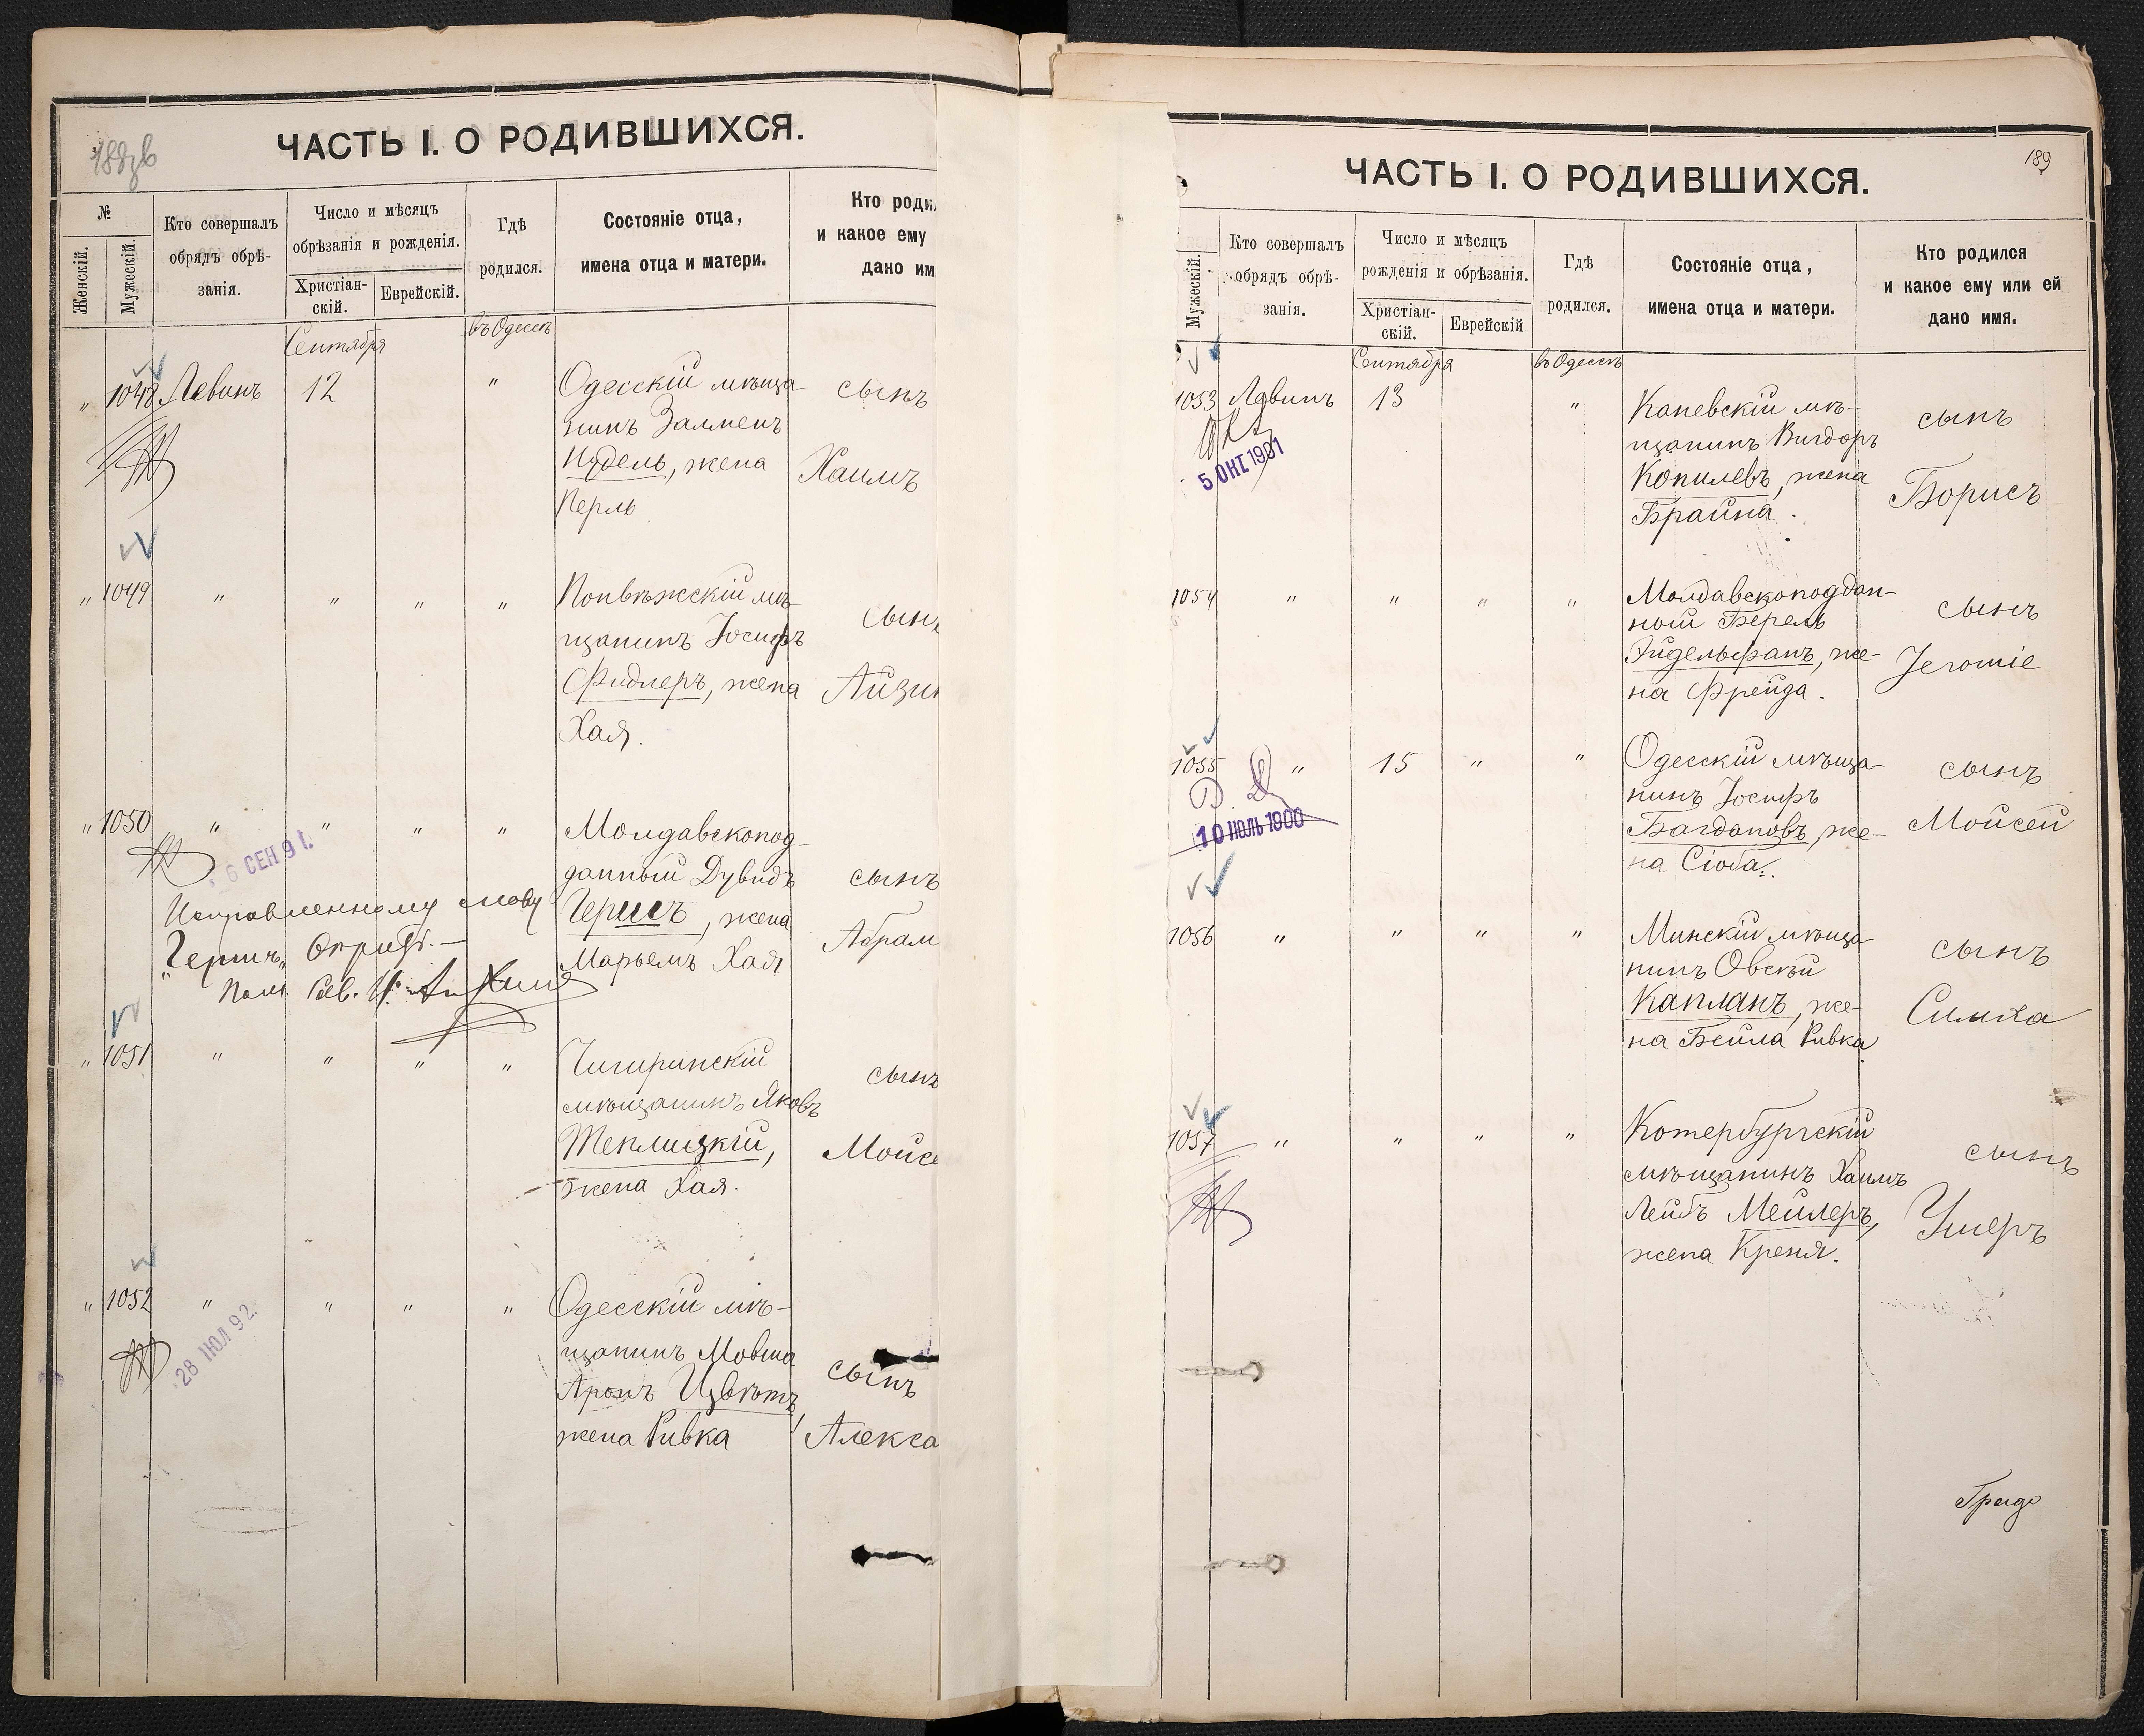 ЧАСТЬ I. О РОДИВШИХСЯ.
№
Женскій.
Мужескій.
Кто совершалъ
обрядъ обрѣ-
занія.
Число и мѣсяцъ
обрѣзанія и рожденія.
Христіан-
скій.
Еврейскій.
Гдѣ
родился.
Состояніе отца,
имена отца и матери.
Кто роди
и какое ему
дано им
Сентября
въ Одессѣ
" 1048 Левинъ 12 " Одесскій мѣща-
нинъ Залменъ
Нудель, жена
Перль
сынъ
Хаимъ
" 1049 " " " " Понвѣжскій мѣ-
щанинъ Іосифъ
Фидлеръ, жена
Хая.
сынъ
Айзик
" 1050 " " " " Молдавскопод-
данный Дувидъ
Геришъ, жена
Марьемъ Хая
сынъ
Абрам
6 СЕН 91.
Исправленному слову
"Геришъ"
" 1051 " " " " Чигиринскій
мѣщанинъ Яковъ
Теплицкій,
жена Хая.
сынъ
Мойсе
" 1052 " " " " Одесскій мѣ-
щанинъ Мовша
Аронъ Цвѣтъ,
жена Ривка
сынъ
Алекса
28 ІЮЛ 92.
ЧАСТЬ I. О РОДИВШИХСЯ.
189
Мужескій.
Кто совершалъ
обрядъ обрѣ-
занія.
Число и мѣсяцъ
рожденія и обрѣзанія.
Христіан-
скій.
Еврейскій
Гдѣ
родился.
Состояніе отца,
имена отца и матери.
Кто родился
и какое ему или ей
дано имя.
Сентября
въ Одессѣ
1053 Левинъ 13 " Каневскій мѣ-
щанинъ Вигдоръ
Копилевъ, жена
Брайна.
сынъ
Борисъ
5 ОКТ 1901
1054 " " " " Молдавскоподдан-
ной Берель
Эйдельфанъ, же-
на Фрейда.
сынъ
Jeromie
1055 " 15 " " Одесскій мѣща-
нинъ Іосифъ
Багдановъ, же-
на Сіоба.
сынъ
Мойсей
10 ІЮЛЬ 1900
1056 " " " " Минскій мѣща-
нинъ Овсѣй
Капланъ, же-
на Бейла Ривка
сынъ
Симха
1057 " " " " Котербургскій
мѣщанинъ Хаимъ
Лейбъ Мейлеръ,
жена Креня.
сынъ
Ушеръ